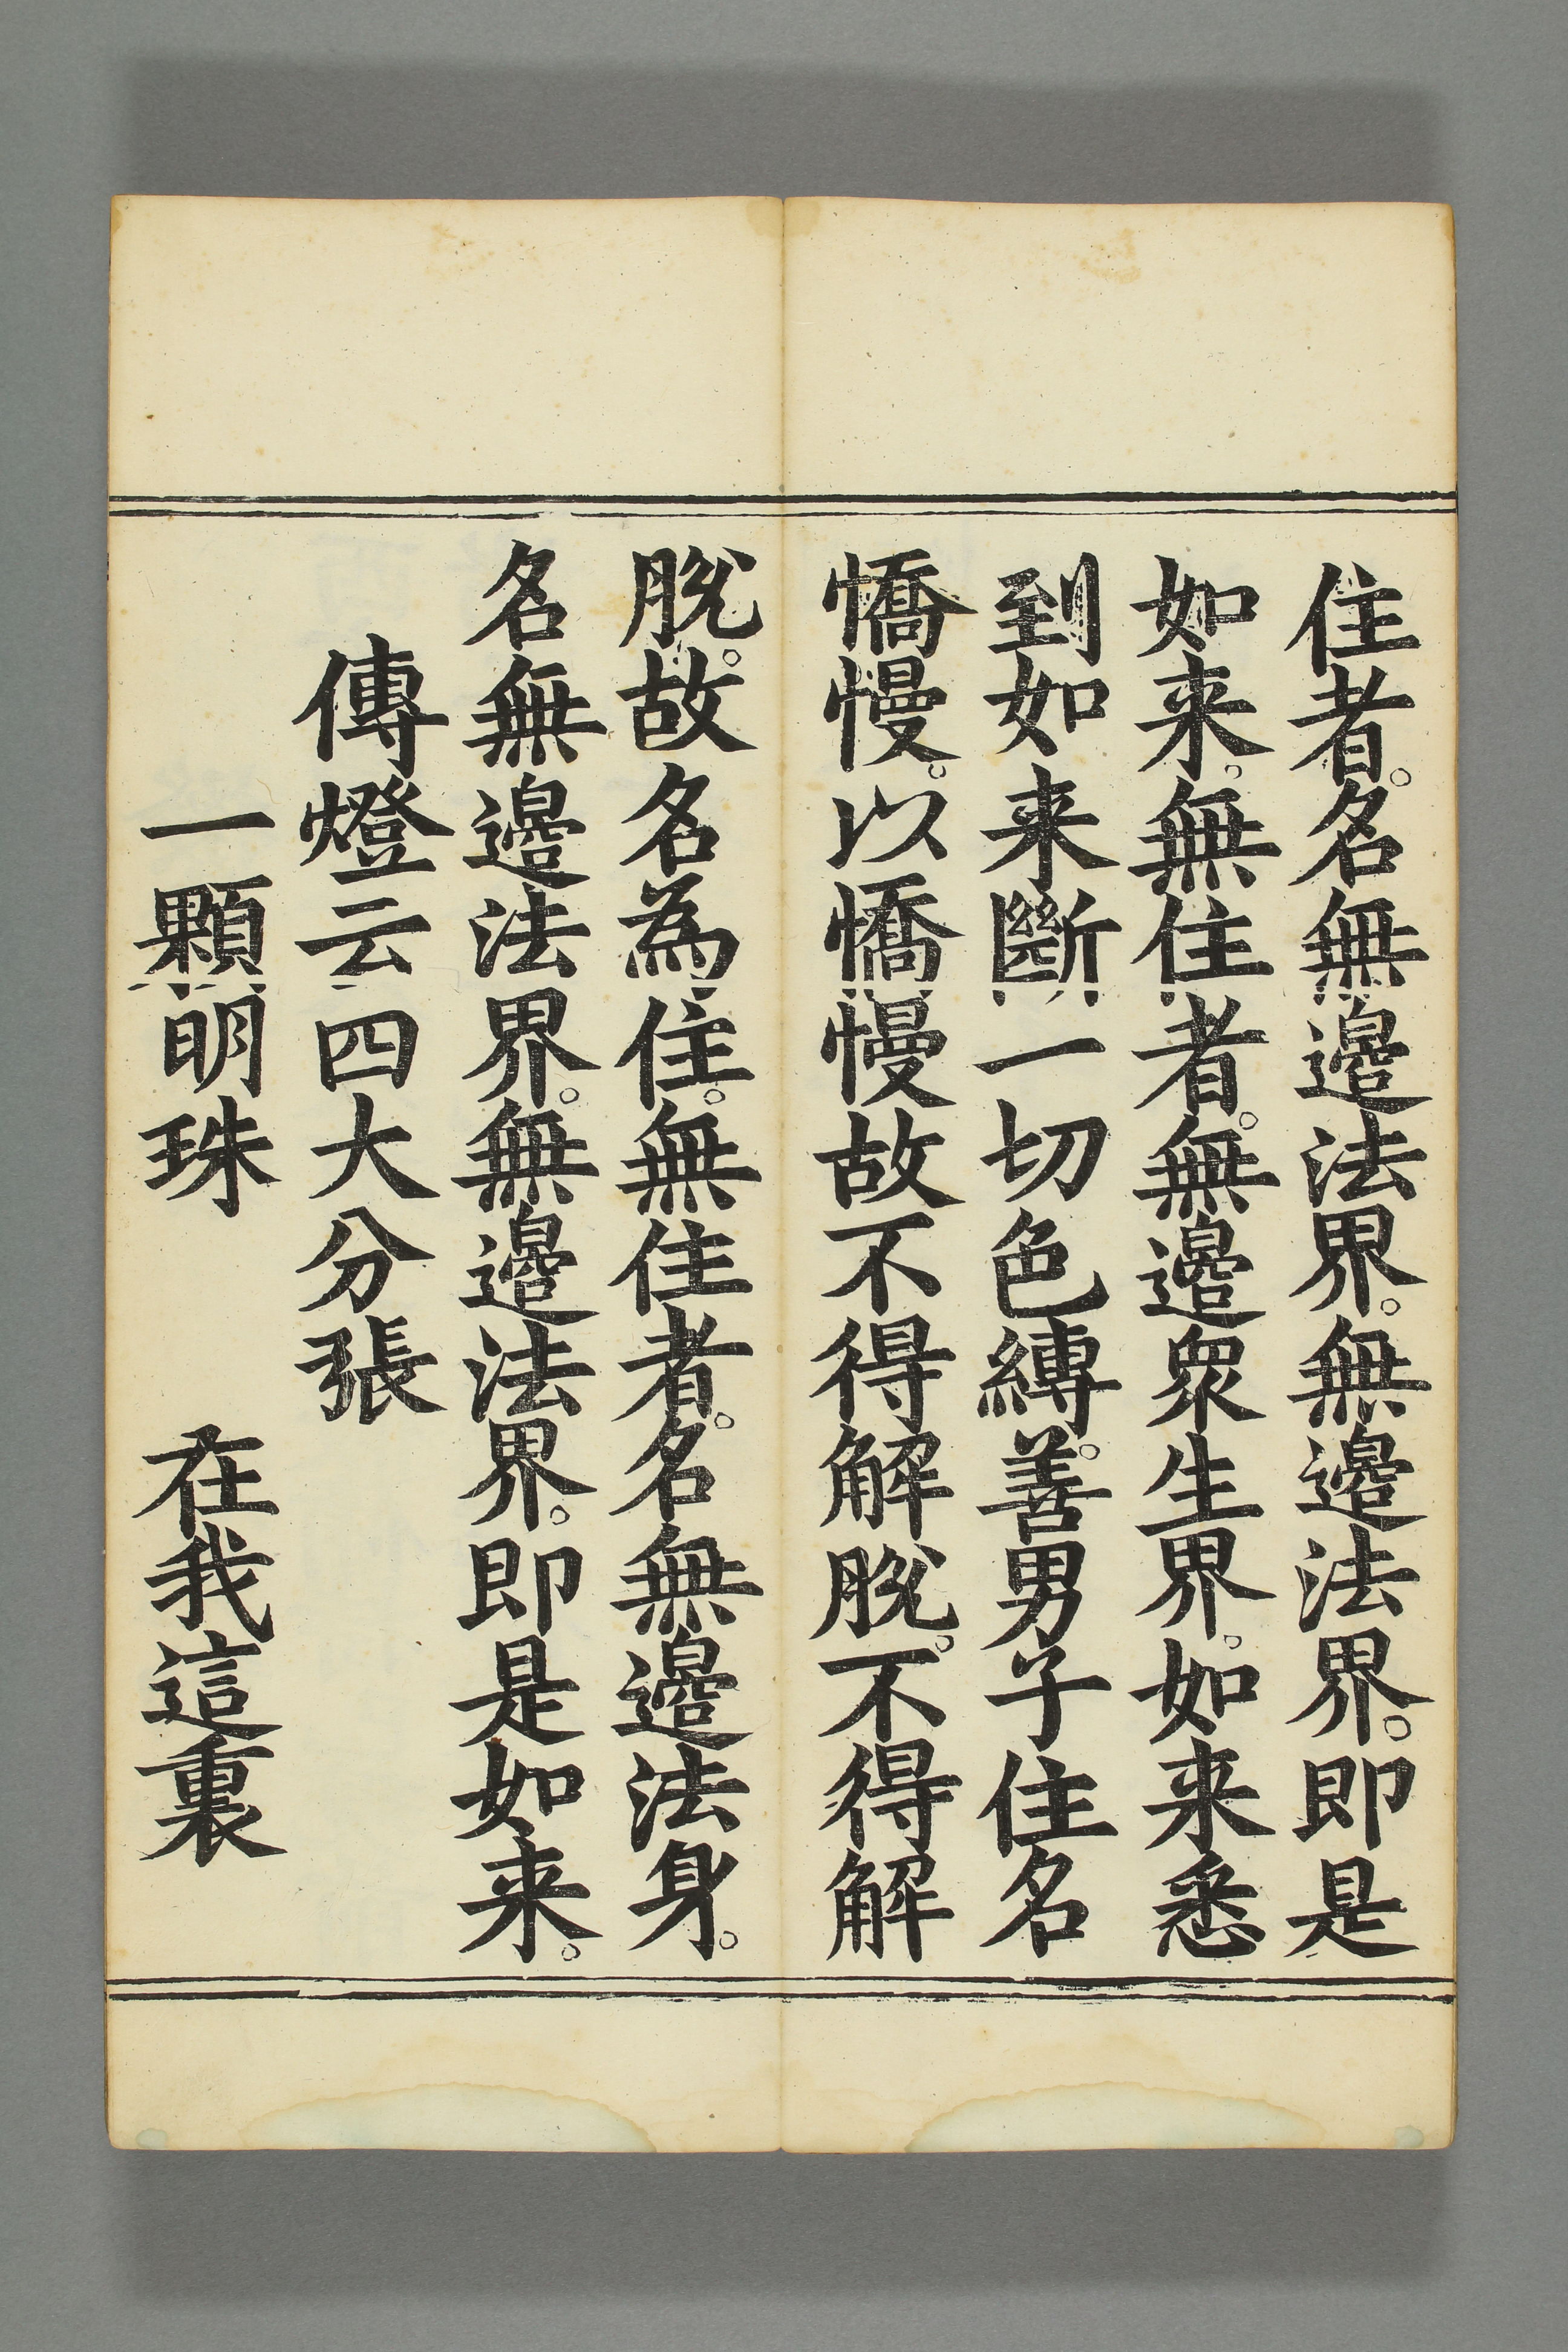 住者。名無邉法界。無邉法界。即是
如来。無住者。無邉衆生界。如来悉
到如来斷一切色縛。善男子住名
憍慢。以憍慢故不得解脫。不得解
脫。故名為住。無住者。名無邉法身。
名無邉法界。無邉法界。即是如来。
傳燈云四大分張
一顆明珠　在我這裏